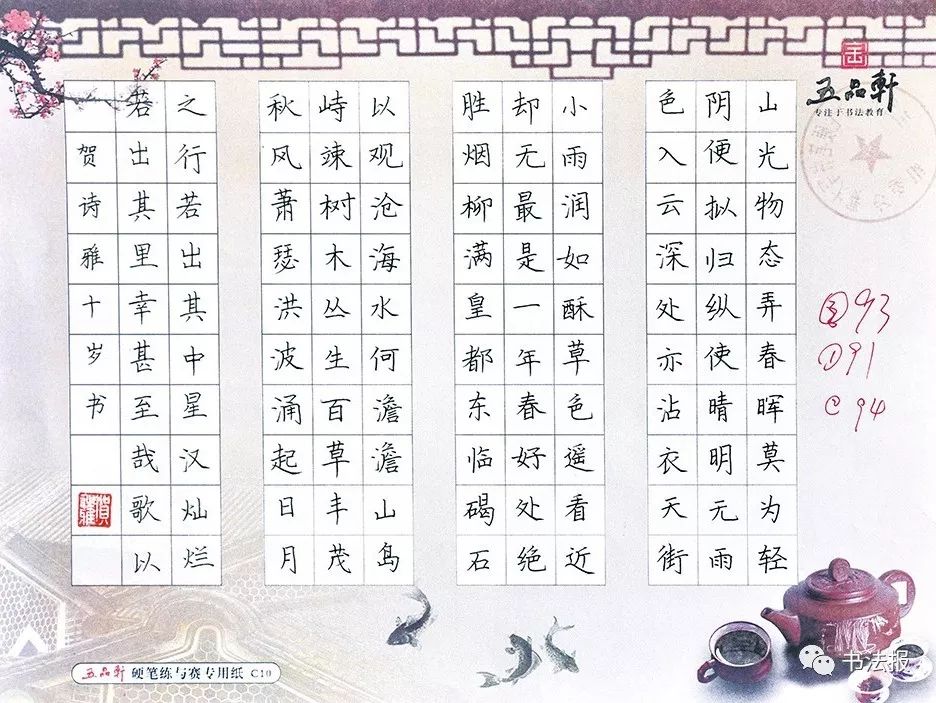 山光物态弄春晖莫为轻
阴便拟归纵使晴明无雨
色入云深处亦沾衣天街
小雨润如酥草色遥看近
却无最是一年春好处绝
胜烟柳满皇都东临碣石
以观沧海水何澹澹山岛
峙竦树木丛生百草丰茂
秋风萧瑟洪波涌起日月
之行若出其中星汉灿烂
若出其里幸甚至哉歌以
贺诗雅十岁书
五品軒
专注于书法教育
93
91
C 94
五品軒 硬笔练与赛专用纸 C10
书法报